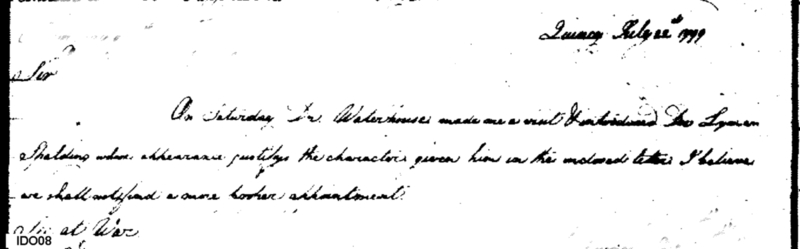 Quincy July 22d 1799
Sir
On Saturday Dr. Waterhouse made me a visit & introduced Dr Lyman
Spalding whose appearance justifys the character given him in the inclosed letter I believe
we shall not find a more proper appointment.
at War
IDO08